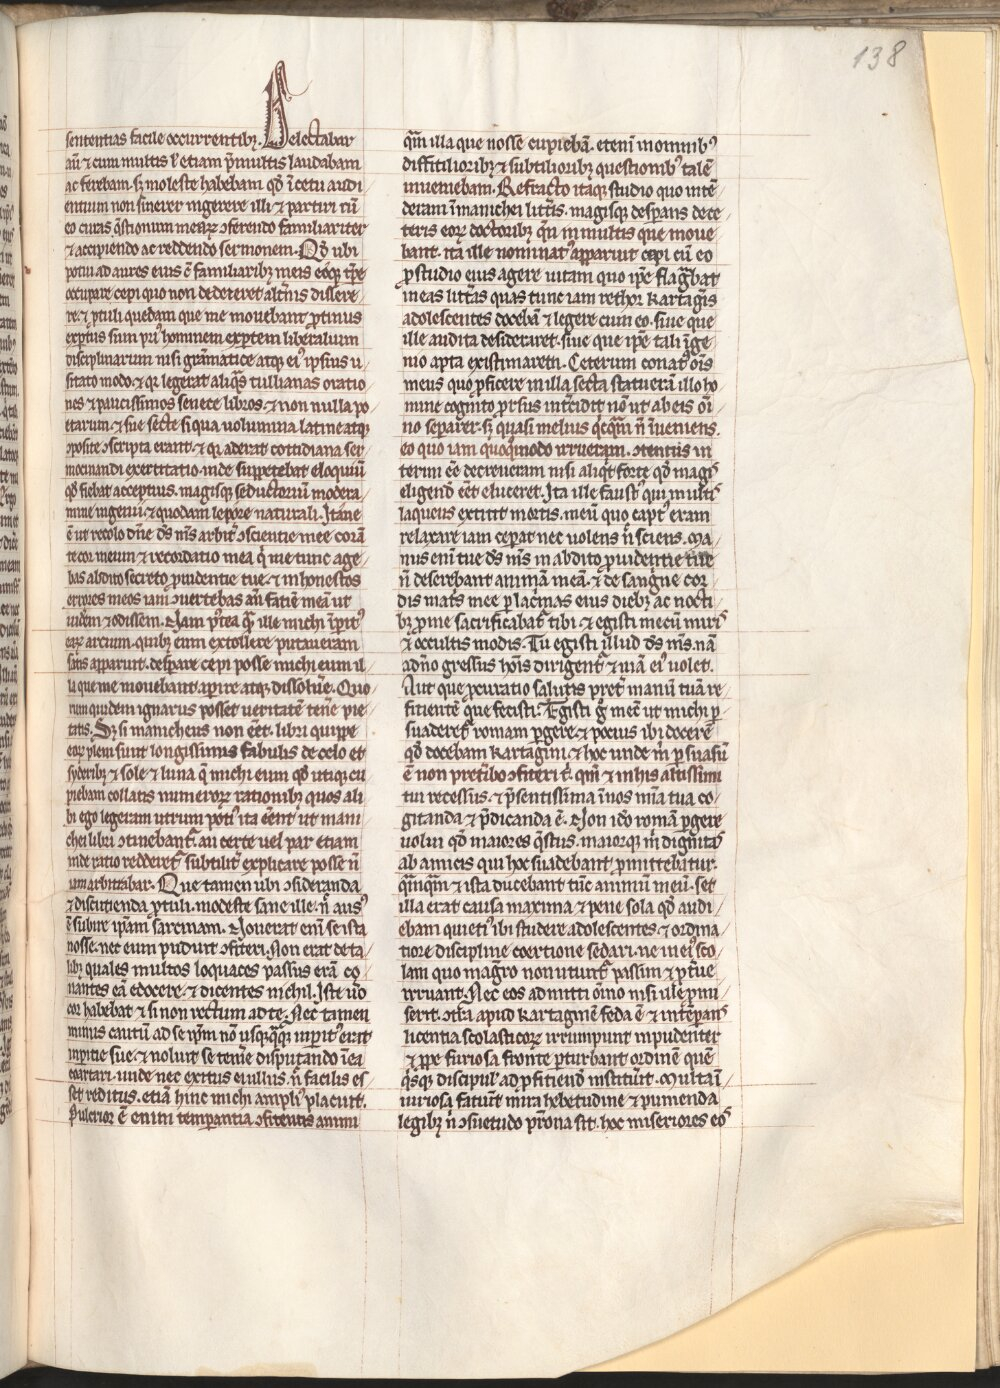 138
sententias facile occurrentibꝫ. Delectabar
aū ⁊ cum multis ł etiam p̄ multis laudabam
ac ferebam. sꝫ moleste habebam qđ ī cetu audi
entium non sinerer ingerere illi ⁊ partiri cū
eo curas q̄stionum mearꝝ ꝯferendo familiariter
⁊ accipiendo ac reddendo sermonem. Qđ ubi
potui ad aures eius c̄ familiaribꝫ meis eoq̄ꝫ tp̄re
occupare cepi quo non dedeceret alt̄nis dissere
re. ⁊ ꝓtuli quedam que me mouebant ꝓtinus
exp̄tus sum pri᷒ hominem exp̄tem liberalium
disciplinarum nisi gram̄atice atqꝫ ei᷒ ipsius u
sitato modo. ⁊ qr legerat aliq̄s tullianas oratio
nes ⁊ paucissimos senece libros. ⁊ non nulla po
etarum. ⁊ sue secte si qua uolumina latine atqꝫ
ꝯposite ꝯscripta erant. ⁊ qr aderat cottidiana ser
mocinandi exertitatio. inde suppetebat eloquiū
qđ fiebat acceptius. magisqꝫ seductoriū modera
mine ingenii ⁊ quodam lepore naturali. Itane
ē ut recolo dn̄e ds̄ ms̄ arbit̄ ꝯscientie mee corā
te cor meum ⁊ recordatio mea q̇ me tunc age
bas abdito secreto ꝓuidentie tue. ⁊ inhonestos
errores meos iam ꝯuertebas an̄ fatiē meā ut
uidēm ⁊ odissem. Nam p̄rea q̄ ille michi īperit᷒
earꝝ artium. quibꝫ eum extollere putaueram
satis apparuit. despare cepi posse michi eum il
la que me mouebant. apire atqꝫ dissolue̅. Quo
rum quidem ignarus posset ueritatē tene̅ pie
tatis. Sꝫ si manicheus non eēt. libri quippe
eorꝝ pleni sunt longissimis fabulis de celo et
syderibꝫ ⁊ sole ⁊ luna q̄ michi eum qđ utiqꝫ cu
piebam collatis numerorꝝ rationibꝫ quos ali
bi ego legeram utrum poti᷒ ita eēnt ut mani
chei libri ꝯtinebant᷑. an certe uel par etiam
inde ratio redderet᷑ subtilit̄ explicare posse n̄
iam arbitrabar. Que tamen ubi ꝯsideranda
⁊ discutienda ꝓtuli. modeste sane ille. n̄ aus᷒
ē subire ip̄am sarcinam. Nouerat enī se ista
nosse. nec eum puduit ꝯfiteri. Non erat de ta
libꝫ quales multos loquaces passus erā co
nantes eā edocere. ⁊ dicentes nichil. Iste ūo
cor habebat ⁊ si non rectum ad te. Nec tamen
nimis cautū ad se ip̄m nō usq̄ꝫq̄ꝫ inperit᷒ erat
inperitie sue. ⁊ noluit se teme̅ disputando ī ea
coartari. unde nec exitus ei ullus. n̄ facilis es
set reditus. etiā hinc michi ampli᷒ placuit.
Pulcrior ē enim temperantia ꝯfitentis animi
qm̄ illa que nosse cupiebā. etenī inomnib᷒
diffitilioribꝫ ⁊ subtilioribꝫ questionib᷒ talē
inueniebam. Refracto itaqꝫ studio quo inte̅
deram ī manichei litt̄is. magisqꝫ despans de ce
teris eorꝝ doctoribꝫ qn̄ in multis que moue
bant. ita ille nominat᷒ apparuit cepi cū eo
ꝓ studio eius agere uitam quo ip̄e flag̅bat
in eas litt̄as quas tunc iam rethor kartag̅is
adolescentes docebā ⁊ legere cum eo. siue que
ille audita desideraret. siue que ip̄e tali īge
nio apta existimarem. Ceterum conat᷒ ois̄
meus quo ꝓficere in illa secta statuerā illo ho
mine cognito p̄rsus int̄cidit nō ut ab eis oī
no separer. sꝫ quasi melius q̇cq̄m n̄ īueniens.
eo quo iam quoq̄modo irrueram. ꝯtentus in
terim eē decreueram nisi aliq̇d forte qđ magi᷒
eligend̄ eēt eluceret. Ita ille faust᷒ qui multi᷒
laqueus extitit mortis. meū quo capt᷒ eram
relaxare iam ceperat nec uolens n̄ sciens. Ma
nus enī tue ds̄ ms̄ in abdito ꝓuidentie tue
n̄ deserebant animā meā. ⁊ de sang̅ne cor
dis mat̄s mee ꝑ lac̄mas eius diebꝫ ac nocti
bꝫ ꝓ me sacrificabat᷑ tibi ⁊ egisti mecū miris
⁊ occultis modis. Tu egisti illud ds̄ ms̄. nā
a dn̄o gressus hōis dirigent᷑ ⁊ uiā ei᷒ uolet.
Aut que ꝓcuratio salutis pret̄ manū tuā re
fitientē que fecisti. Egisti ḡ mec̄ ut michi ꝑ
suaderet᷑ romam pergere ⁊ pocius ibi docere̅
qđ docebam kartagini. ⁊ hoc unde m̄ ꝑsuasū
ē non pret̄ibo ꝯfiteri t̄. qm̄ ⁊ in his altissimi
tui recessus. ⁊ p̄sentissima ī nos mīa tua co
gitanda ⁊ p̄dicanda ē. Non ido romā ꝑgere
uolui qđ maiores q̄stus. maiorqꝫ m̄ dignitas
ab amicis qui hoc suadebant ꝓmittebatur.
q̄mq̄m ⁊ ista ducebant tūc animū meū. set
illa erat causa maxima ⁊ pene sola qđ audi
ebam quieti᷒ ibi studere adolescentes. ⁊ ordina
tiore discipline coertione sedari. ne in ei᷒ sco
lam quo magr̄o non utunt᷑ passim ⁊ ꝓt̄ue
irruant. Nec eos admitti oīno nisi ille ꝑmi
serit. ꝯt̄a apud kartaginē feda ē ⁊ intēperans
licentia scolasticorꝝ irrumpunt inpudenter
⁊ ꝓpe furiosa fronte ꝑturbant ordinē quē
q̇sqꝫ discipul᷒ ad ꝓfitiend̄ instituit. Multa ī
iuriosa fatiūt mira hebetudine ⁊ punienda
legibꝫ n̄ ꝯsuetudo pr̄ona sit. hoc miseriores eos